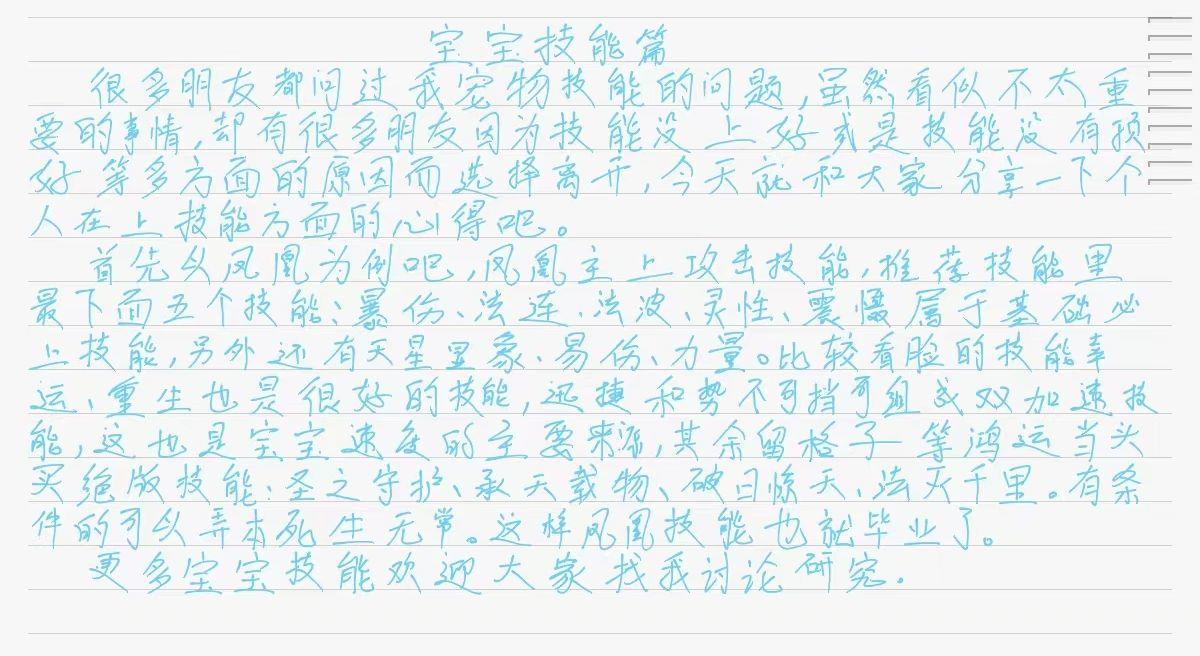 宝宝技能篇
很多朋友都问过我宠物技能的问题,虽然看似不太重
要的事情,却有很多朋友因为技能没上好或是技能没有预
好等多方面的原因而选择离开,今天就和大家分享一下个
人在上技能方面的心得吧。
首先以凤凰为例吧,凤凰主上攻击技能,推荐技能里
最下面五个技能:暴伤、法连、法波、灵性、震慑属于基础必
上技能,另外还有天星显象、易伤、力量。比较看脸的技能幸
运、重生也是很好的技能,迅捷和势不可挡可组成双加速技
能,这也是宝宝速度的主要来源,其余留格子等鸿运当头
买绝版技能:圣之守护、承天载物、破日惊天、法灭千里。有条
件的可以弄本死生无常。这样凤凰技能也就毕业了。
更多宝宝技能欢迎大家找我讨论研究.